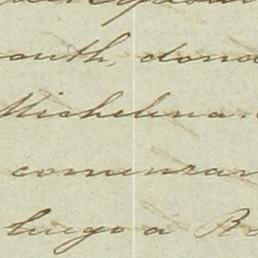 outh, dond
Michelena.
comenzar
luego a Be